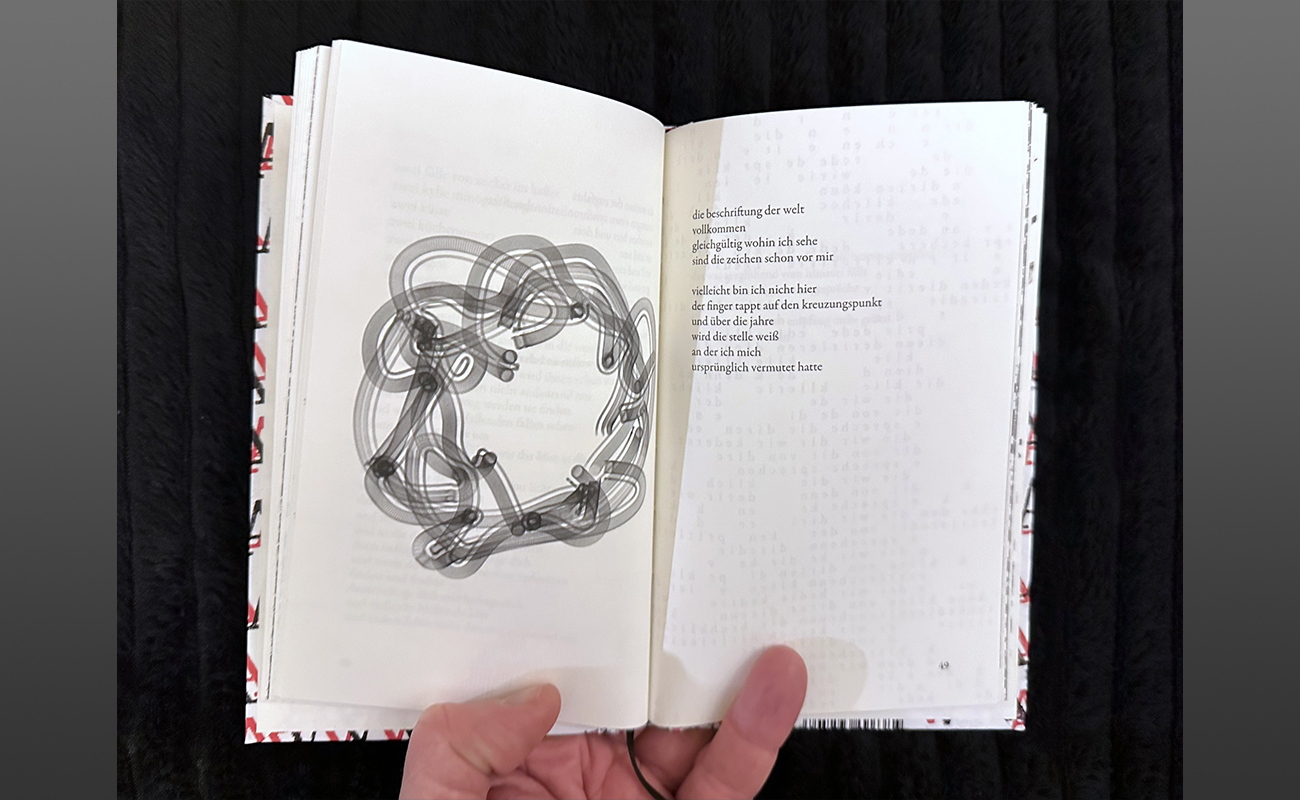 die beschriftung der welt
vollkommen
gleichgültig wohin ich sehe
sind die zeichen schon vor mir
vielleicht bin ich nicht hier
der finger tappt auf den kreuzungspunkt
und über die jahre
wird die stelle weiß
an der ich mich
ursprünglich vermutet hatte
49